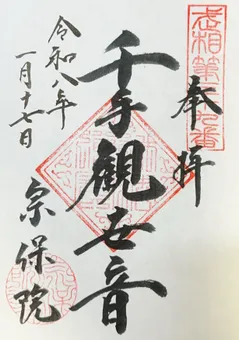 武相第九番
奉拝
千手観世音
宗保院
令和八年
一月十七日